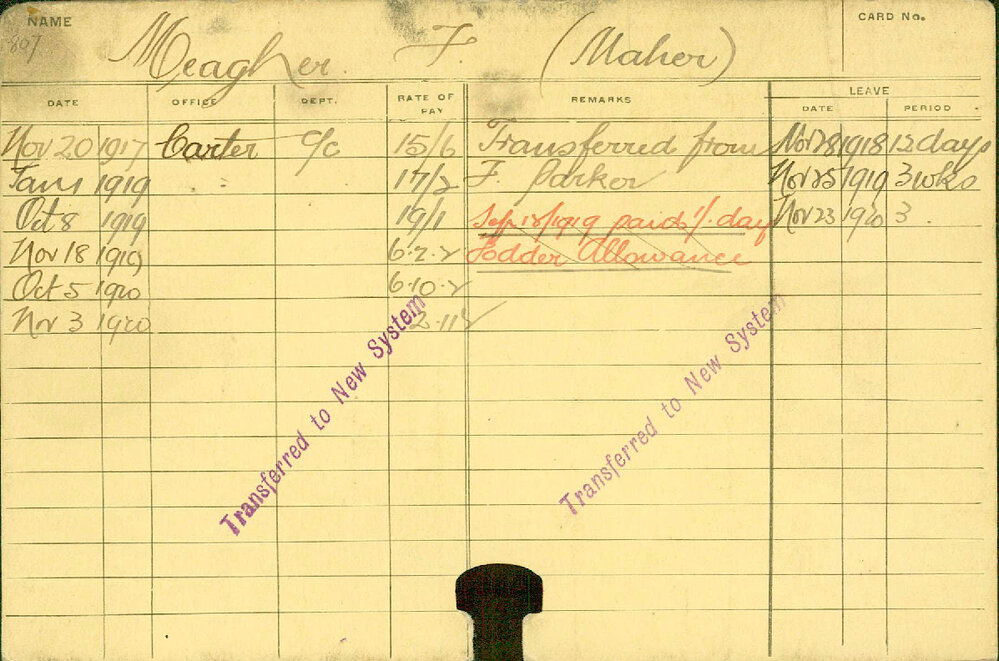 NAME
CARD No.
807
Meagher F. (Maher)
DATE OFFICE DEPT. RATE OF PAY REMARKS LEAVE
DATE PERIOD
Nov 20 1917 Carter C/C 15/6 Transferred from Nov 28 1918 12 days
Jan 1 1919 " 17/2 F. Parker Nov 25 1919 3 wks
Oct 8 1919 19/1 Sep 18/1919 paid 1/. day Nov 23 1920 3
Nov 18 1919 6.2.2 Fodder Allowance
Oct 5 1920 6.10.2
Nov 3 1920 2.11
Transferred to New System
Transferred to New System